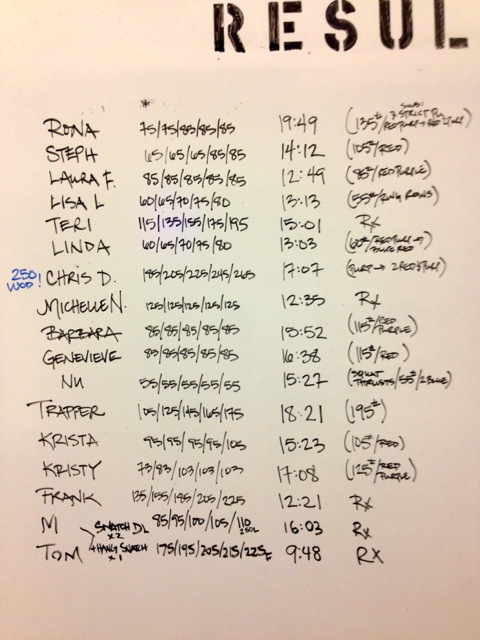 RESUL
*
RONA 75/75/85/85/85 19:49 (135# STRICT
STEPH 65/65/65/85/85 14:12 (105#/RED)
LAURA F. 85/85/85/85/85 12:49 (85#/RED PURPLE)
LISA L 60/65/70/75/80 13:13 (55#/RING ROWS)
TERI 115/135/155/175/195 15:01 RX
LINDA 60/65/70/75/80 13:03
250 WOD! CHRIS D. 185/205/225/245/265 17:07
MICHELLE N. 125/125/125/125/125 12:35 RX
BARBARA 85/85/85/85/85 15:52 (115#/RED PURPLE)
GENEVIEVE 85/85/85/85/85 16:38 (115#/RED)
NU 55/55/55/55/55 15:27 (SQUAT THRUSTS/55#/2 BLUE)
TRAPPER 105/125/145/165/175 18:21 (195#)
KRISTA 95/95/95/95/105 15:23 (105#/RED)
KRISTY 73/83/103/103/103 17:08 (125#/RED PURPLE)
FRANK 135/155/185/205/225 12:21 RX
M SNATCH DL x2 85/95/100/105/110 16:03 RX
TOM + HANG SNATCH x1 175/195/205/215/225 9:48 RX